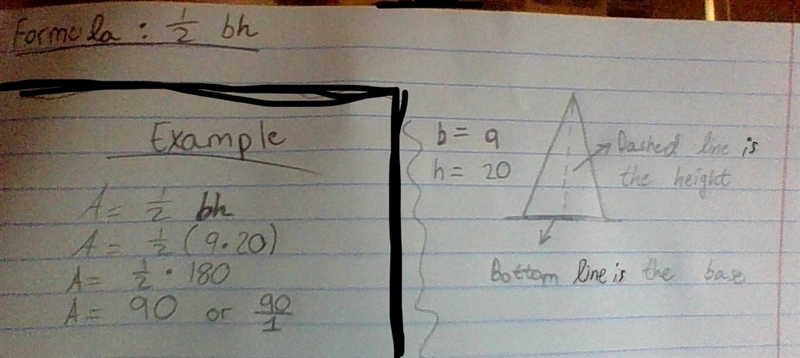 Formula : 1/2 bh
Example
A = 1/2 bh
A = 1/2 (9·20)
A = 1/2 · 180
A = 90 or 90/1
b = 9
h = 20
Dashed line is
the height
Bottom line is the base